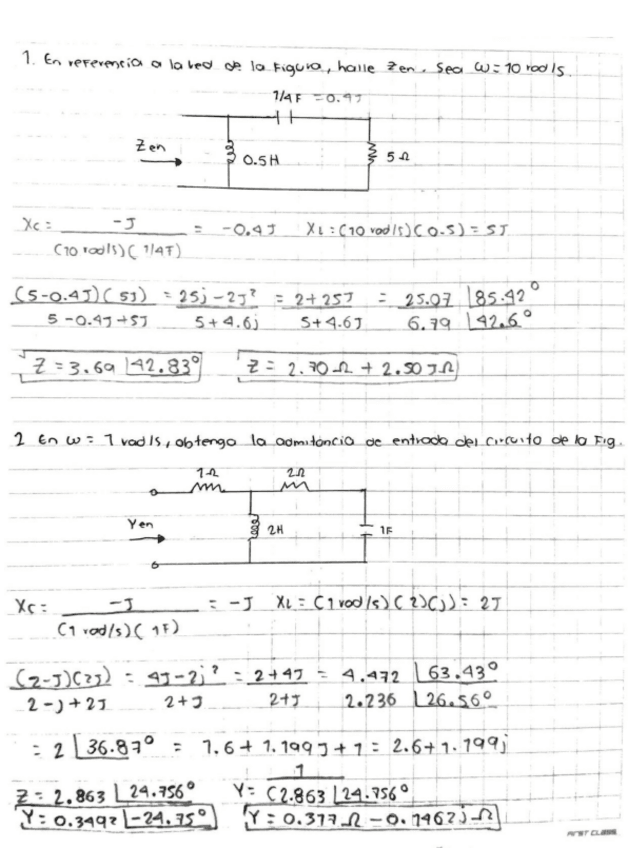 1. En referencia a la red de la figura, halle Zen. Sea ω = 10 rad/s.
1/4 F = 0.4J
Zen
0.5H
5Ω
Xc = -J / (10 rad/s)(1/4F) = -0.4J XL = (10 rad/s)(0.5) = 5J
(5-0.4J)(5J) / 5-0.4J+5J = 25j-2J² / 5+4.6j = 2+25J / 5+4.6J = 25.07 ∠85.42° / 6.79 ∠42.6°
Z = 3.69 ∠42.83° Z = 2.70Ω + 2.50JΩ
2 En ω = 1 rad/s, obtenga la admitancia de entrada del circuito de la Fig.
1Ω 2Ω
Yen
2H
1F
Xc = -J / (1 rad/s)(1F) = -J XL = (1 rad/s)(2)(j) = 2J
(2-J)(2j) / 2-j+2J = 4J-2j² / 2+J = 2+4J / 2+J = 4.472 ∠63.43° / 2.236 ∠26.56°
= 2 ∠36.87° = 1.6 + 1.199J + 1 = 2.6 + 1.199j
Z = 2.863 ∠24.756° Y = 1 / (2.863 ∠24.756°
Y = 0.3492 ∠-24.75° Y = 0.317Ω - 0.1462jΩ
FIRST CLASS